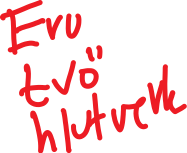 Eru
tvö
hlutverk